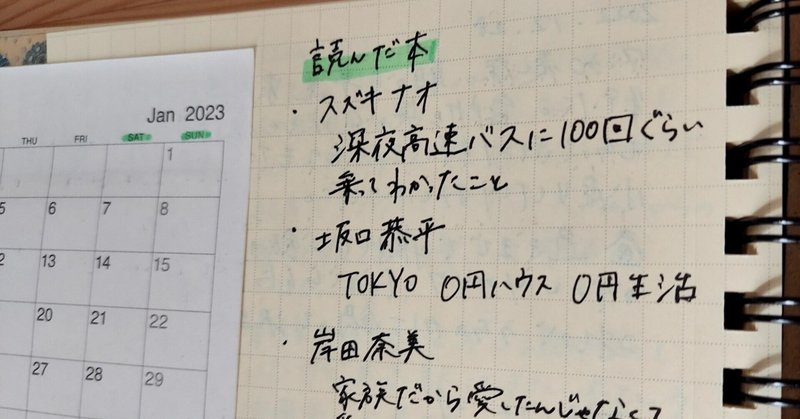 Jan 2023
THU FRI SAT SUN
1
5 6 7 8
12 13 14 15
20 21 22
27 28 29
読んだ本
・スズキナオ
深夜高速バスに100回ぐらい
乗ってわかったこと
・坂口恭平
TOKYO 0円ハウス 0円生活
・岸田奈美
家族だから愛したんじゃなくて